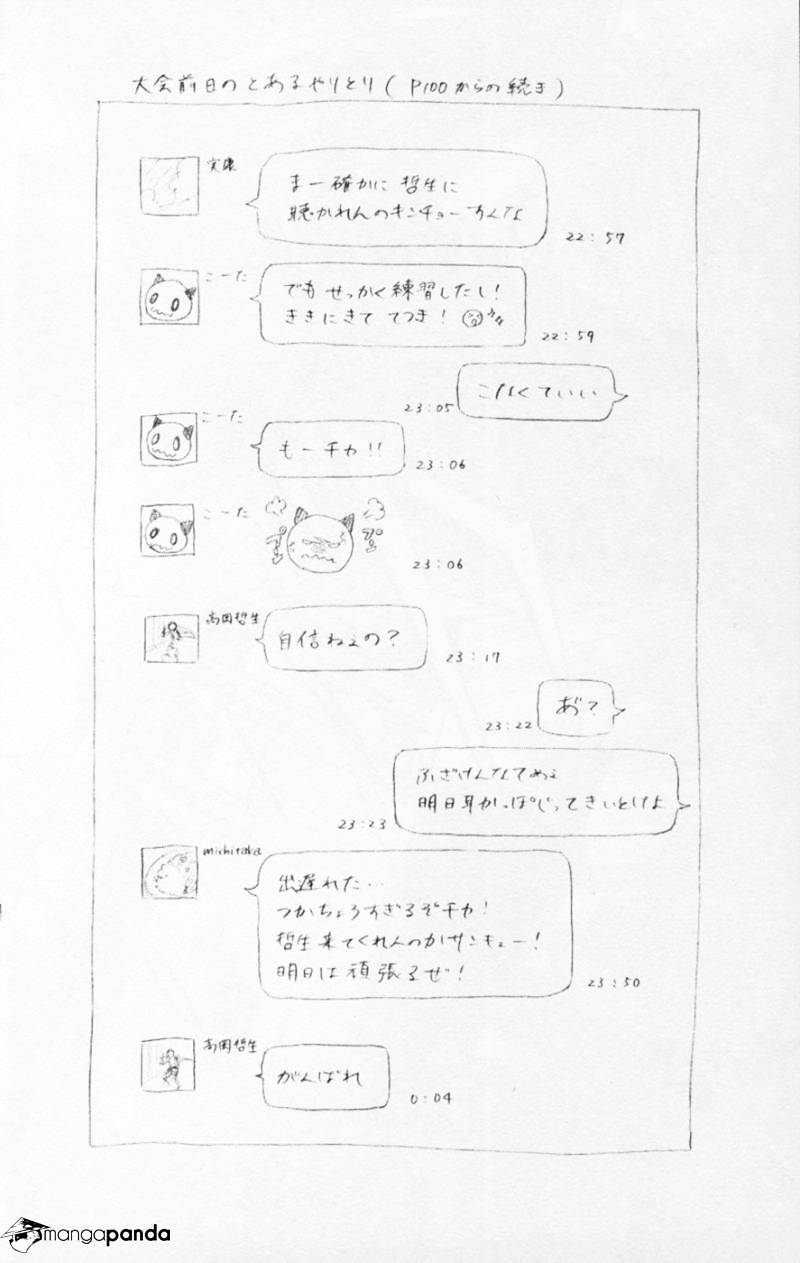 大会前日のとあるやりとり(P100からの続き)
実康
まー確かに哲生に
聴かれんのキンチョーすんな
22:57
こーた
でもせっかく練習したし!
ききにきて てつき!
22:59
こなくていい
23:05
こーた
もーチカ!!
23:06
こーた
プン プン
23:06
高岡哲生
自信ねぇの?
23:17
あ゛?
23:22
ふざけんなてめぇ
明日耳かっぽじってきいとけよ
23:23
michitaka
出遅れた…
つかちょろすぎるぞチカ!
哲生来てくれんのかサンキュー!
明日は頑張るぜ!
23:50
高岡哲生
がんばれ
0:04
mangapanda